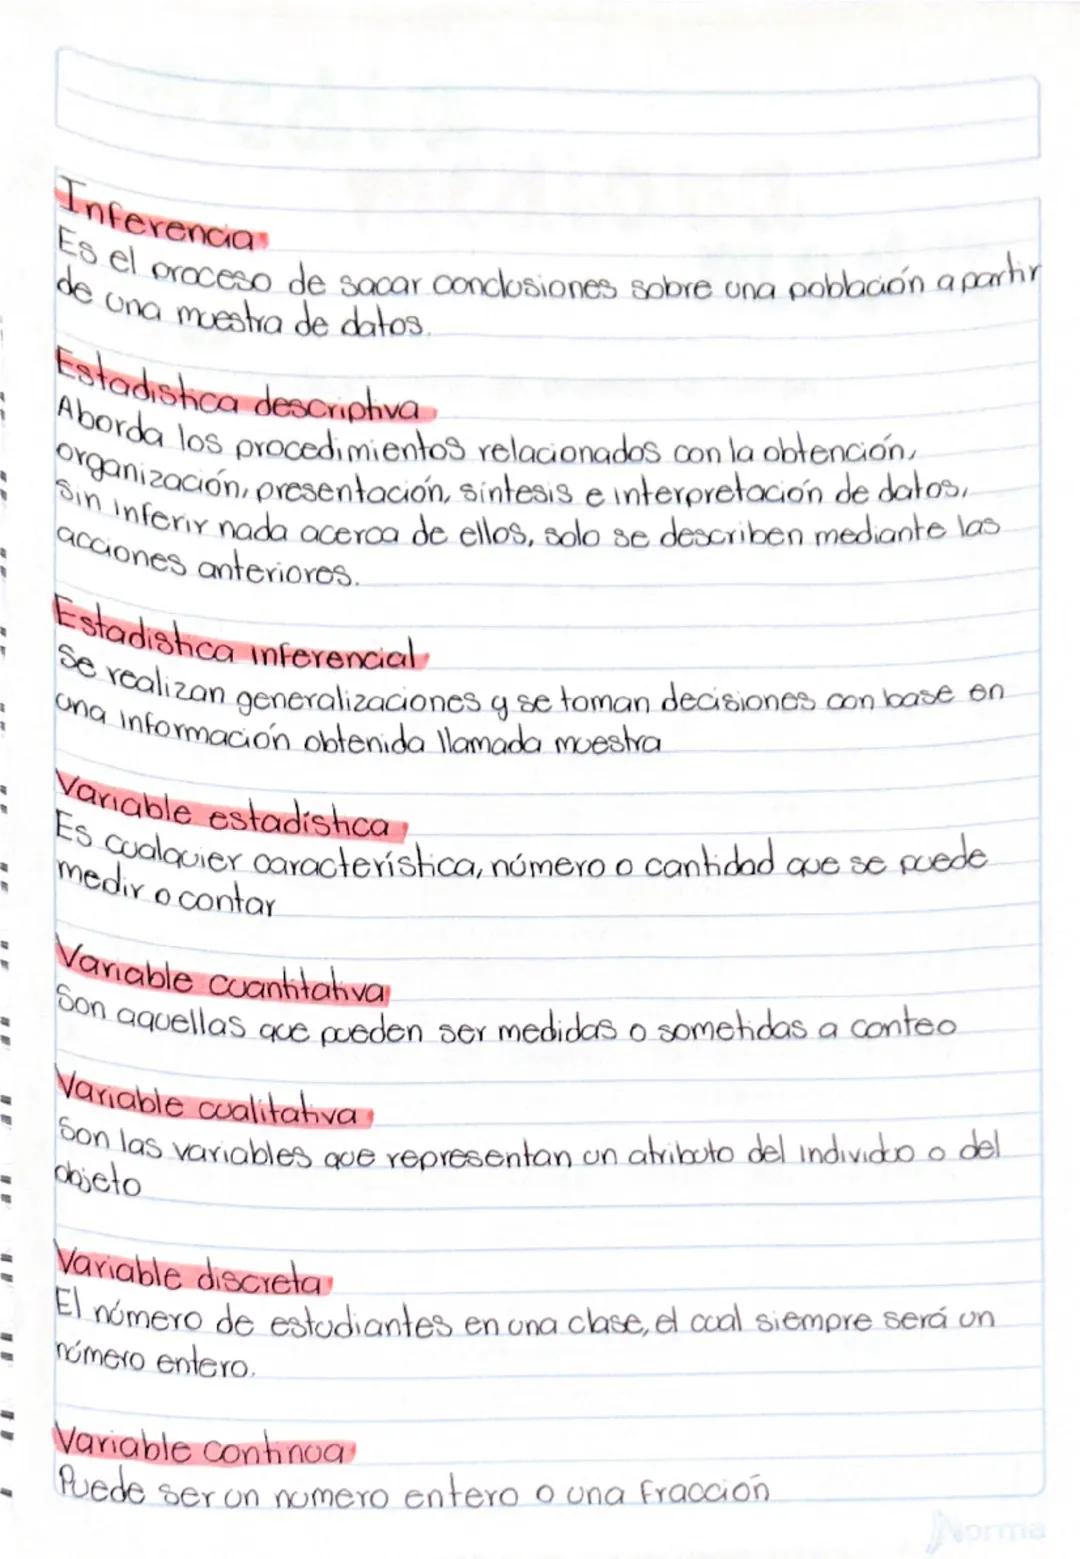 Inferencia
Es el proceso de sacar conclusiones sobre una población a partir
de una muestra de datos.
Estadistica descriptiva
Aborda los procedimientos relacionados con la obtención,
organización, presentación, síntesis e interpretación de datos,
sin inferir nada acerca de ellos, solo se describen mediante las
acciones anteriores.
Estadistica inferencial
Se realizan generalizaciones y se toman decisiones con base en
una información obtenida llamada muestra
Variable estadística
Es cualquier característica, número o cantidad que se puede
medir o contar
Variable cuantitativa
Son aquellas que pueden ser medidas o sometidas a conteo
Variable cualitativa
Son las variables que representan un atributo del individuo o del
objeto
Variable discreta
El número de estudiantes en una clase, el cual siempre será un
número entero.
Variable continua
Puede ser un numero entero o una fracción
Norma